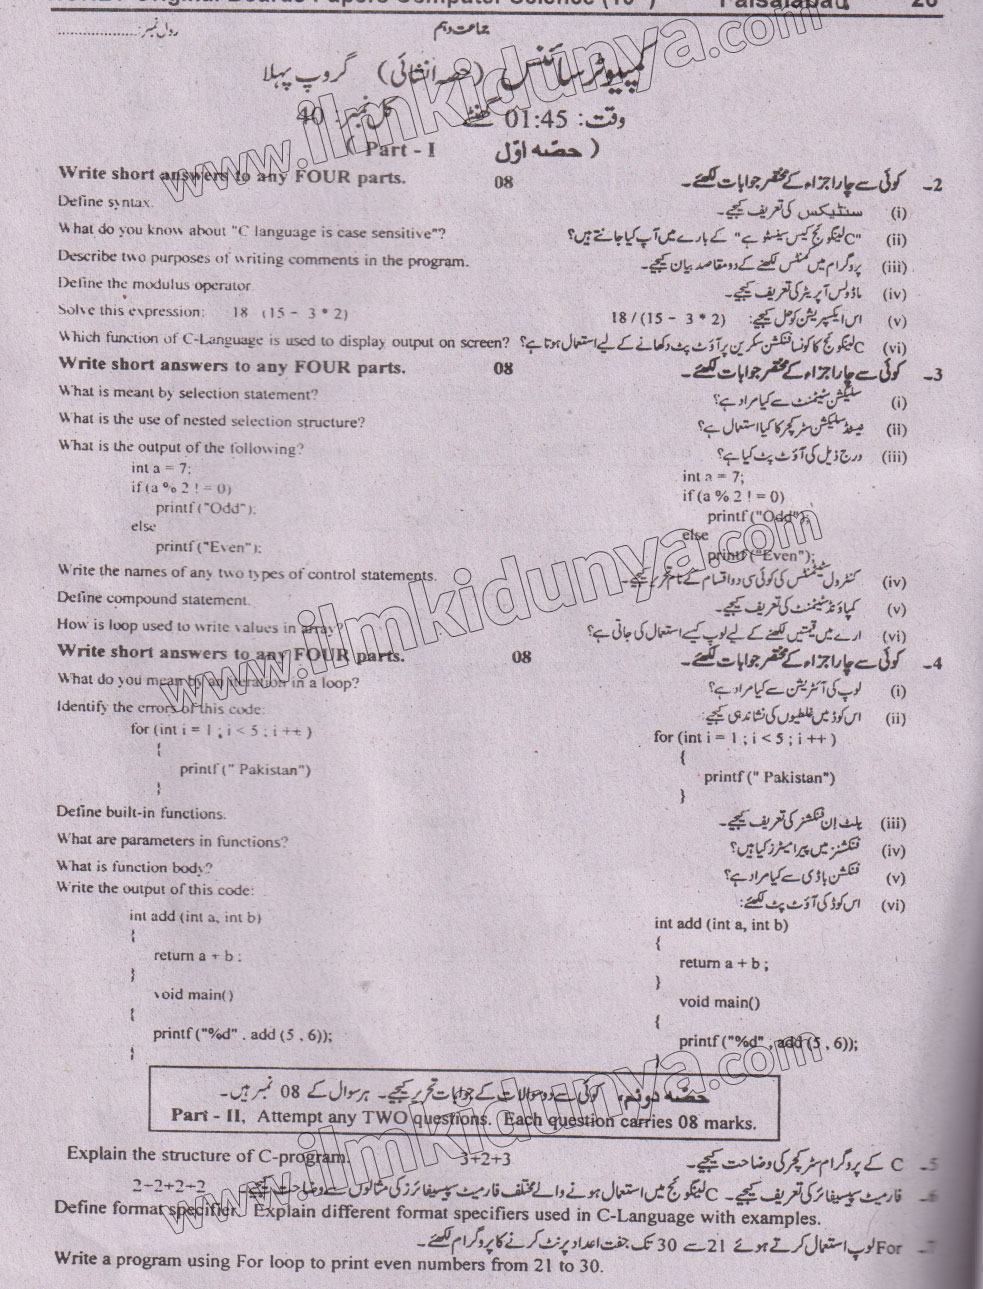 Original Boards Papers Computer Science (10 ) Faisalabad 26
جماعت دہم
رول نمبر:
کمپیوٹر سائنس (حصہ انشائی) گروپ پہلا
وقت: 01:45 گھنٹے کل نمبر: 40
( حصّہ اوّل Part - I )
Write short answers to any FOUR parts. 08 2۔ کوئی سے چار اجزاء کے مختصر جوابات لکھئے۔
Define syntax. (i) سنٹیکس کی تعریف کیجیے۔
What do you know about "C language is case sensitive"? (ii) "C لینگوئج کیس سینسٹو ہے" کے بارے میں آپ کیا جانتے ہیں؟
Describe two purposes of writing comments in the program. (iii) پروگرام میں کمنٹس لکھنے کے دو مقاصد بیان کیجیے۔
Define the modulus operator. (iv) ماڈولس آپریٹر کی تعریف کیجیے۔
Solve this expression: 18 (15 - 3 * 2) (v) اس ایکسپریشن کو حل کیجیے: 18 / (15 - 3 * 2)
Which function of C-Language is used to display output on screen? (vi) C لینگوئج کا کونسا فنکشن سکرین پر آؤٹ پٹ دکھانے کے لیے استعمال ہوتا ہے؟
Write short answers to any FOUR parts. 08 3۔ کوئی سے چار اجزاء کے مختصر جوابات لکھئے۔
What is meant by selection statement? (i) سلیکشن سٹیٹمنٹ سے کیا مراد ہے؟
What is the use of nested selection structure? (ii) نیسٹڈ سلیکشن سٹرکچر کا کیا استعمال ہے؟
What is the output of the following? (iii) درج ذیل کی آؤٹ پٹ کیا ہے؟
int a = 7; int a = 7;
if (a % 2 ! = 0) if (a % 2 ! = 0)
printf ("Odd"); printf ("Odd");
else else
printf ("Even"); printf ("Even");
Write the names of any two types of control statements. (iv) کنٹرول سٹیٹمنٹس کی کوئی سی دو اقسام کے نام تحریر کیجیے۔
Define compound statement. (v) کمپاؤنڈ سٹیٹمنٹ کی تعریف کیجیے۔
How is loop used to write values in array? (vi) ارے میں قیمتیں لکھنے کے لیے لوپ کیسے استعمال کی جاتی ہے؟
Write short answers to any FOUR parts. 08 4۔ کوئی سے چار اجزاء کے مختصر جوابات لکھئے۔
What do you mean by an iteration in a loop? (i) لوپ کی آئٹریشن سے کیا مراد ہے؟
Identify the errors of this code: (ii) اس کوڈ میں غلطیوں کی نشاندہی کیجیے:
for (int i = 1 ; i < 5 ; i ++ ) for (int i = 1 ; i < 5 ; i ++ )
{ {
printf (" Pakistan") printf (" Pakistan")
} }
Define built-in functions. (iii) بلٹ اِن فنکشنز کی تعریف کیجیے۔
What are parameters in functions? (iv) فنکشنز میں پیرامیٹرز کیا ہیں؟
What is function body? (v) فنکشن باڈی سے کیا مراد ہے؟
Write the output of this code: (vi) اس کوڈ کی آؤٹ پٹ لکھئے:
int add (int a, int b) int add (int a, int b)
{ {
return a + b ; return a + b ;
} }
void main() void main()
{ {
printf ("%d" , add (5 , 6)); printf ("%d" , add (5 , 6));
} }
حصّہ دوئم، کوئی سے دو سوالات کے جوابات تحریر کیجیے۔ ہر سوال کے 08 نمبر ہیں۔
Part - II, Attempt any TWO questions. Each question carries 08 marks.
Explain the structure of C-program. 3+2+3 5۔ C کے پروگرام سٹرکچر کی وضاحت کیجیے۔
2+2+2+2 6۔ فارمیٹ سپیسیفائر کی تعریف کیجیے۔ C لینگوئج میں استعمال ہونے والے مختلف فارمیٹ سپیسیفائرز کی مثالوں سے وضاحت کیجیے۔
Define format specifier. Explain different format specifiers used in C-Language with examples.
7۔ For لوپ استعمال کرتے ہوئے 21 سے 30 تک جفت اعداد پرنٹ کرنے کا پروگرام لکھئے۔
Write a program using For loop to print even numbers from 21 to 30.
www.ilmkidunya.com
www.ilmkidunya.com
www.ilmkidunya.com